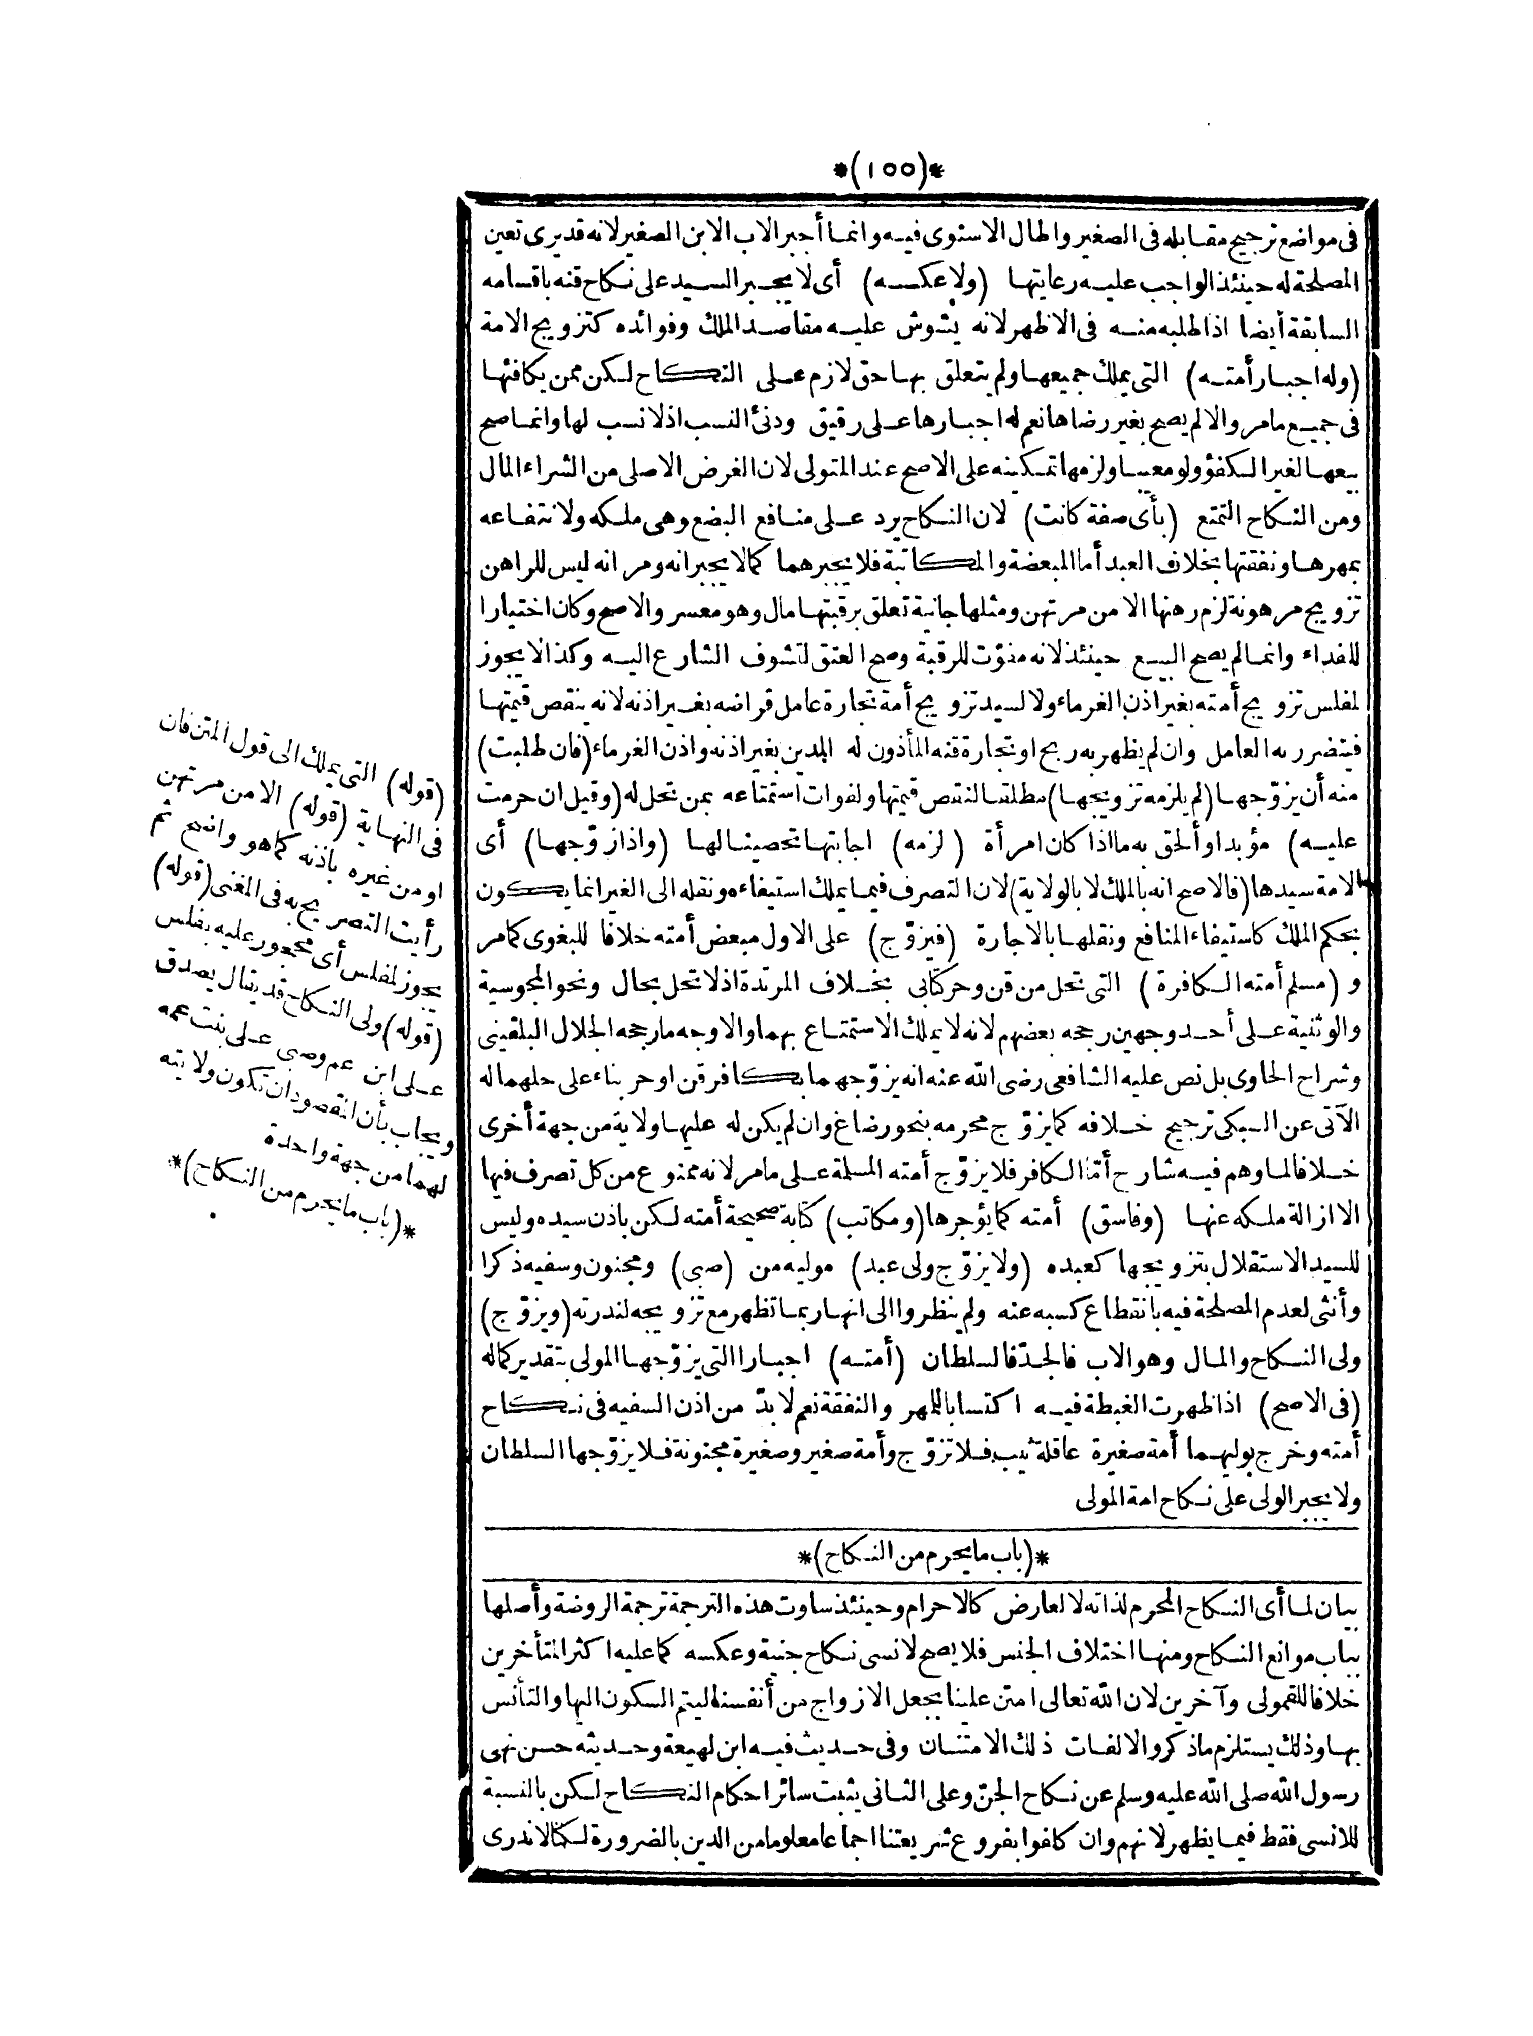 *(١٥٥)*
فى مواضع ترجيح مقابله فى الصغير والحال الاستوى فيه وانما أجبر الاب الابن الصغير لانه قديرى تعين
المصلحة له حينئذ الواجب عليه رعايتها (ولا عكسه) أى لا يجبر السيد على نكاح قنه باقسامه
السابقة أيضا اذا طلبه منه فى الاظهر لانه يشوش عليه مقاصد الملك وفوائده كتزويج الامة
(وله اجبار أمته) التى يملك جميعها ولم يتعلق بها حق لازم على النكاح لكن ممن يكافئها
فى جميع مامر والا لم يصح بغير رضاها نعم له اجبارها على رقيق ودنئ النسب اذ لا نسب لها وانما صح
بيعها لغير الكفؤ ولو معيبا ولزمها تمكينه على الاصح عند المتولى لان الغرض الاصلى من الشراء المال
ومن النكاح التمتع (بأى صفة كانت) لان النكاح يرد على منافع البضع وهى ملكه ولانتفاعه
بمهرها ونفقتها بخلاف العبد أما المبعضة والمكاتبة فلا يجبرهما كما لا يجبرانه ومر انه ليس للراهن
تزويج مرهونة لزم رهنها الا من مرتهن ومثلها جانية تعلق برقبتها مال وهو معسر والاصح وكان اختيارا
للفداء وانما لم يصح البيع حينئذ لانه مفوّت للرقبة وصح العتق لتشوف الشارع اليه وكذا لا يجوز
لمفلس تزويج أمته بغير اذن الغرماء ولا لسيد تزويج أمة تجارة عامل قراضه بغير اذنه لانه ينقص قيمتها
فيتضرر به العامل وان لم يظهر به ربح او تجارة قنه المأذون له المدين بغير اذنه واذن الغرماء (فان طلبت)
منه أن يزوّجها (لم يلزمه تزويجها) مطلقا لنقص قيمتها ولفوات استمتاعه بمن تحل له (وقيل ان حرمت
عليه) مؤبدا أو ألحق به ما اذا كان امرأة (لزمه) اجابتها تحصينا لها (واذا زوّجها) أى
الامة سيدها (فالاصح انه بالملك لا بالولاية) لان التصرف فيما يملك استيفاءه ونقله الى الغير انما يكون
بحكم الملك كاستيفاء المنافع ونقلها بالاجارة (فيزوّج) على الاول مبعض أمته خلافا للبغوى كما مر
و (مسلم أمته الكافرة) التى تحل من قن وحر كتابى بخلاف المرتدة اذ لا تحل بحال ونحو المجوسية
والوثنية على أحد وجهين رجحه بعضهم لانه لا يملك الاستمتاع بهما والاوجه ما رجحه الجلال البلقينى
وشراح الحاوى بل نص عليه الشافعى رضى الله عنه انه يزوّجهما بكافر قن او حر بناء على حلهما له
الآتى عن السبكى ترجيح خلافه كما يزوّج محرمه بنحو رضاع وان لم يكن له عليها ولاية من جهة أخرى
خلافا لما وهم فيه شارح أمّا الكافر فلا يزوّج أمته المسلمة على مامر لانه ممنوع من كل تصرف فيها
الا ازالة ملكه عنها (وفاسق) أمته كما يؤجرها (ومكاتب) كتابة صحيحة أمته لكن باذن سيده وليس
للسيد الاستقلال بتزويجها كعبده (ولا يزوّج ولى عبد) موليه من (صبى) ومجنون وسفيه ذكرا
وأنثى لعدم المصلحة فيه بانقطاع كسبه عنه ولم ينظروا الى انها ربما تظهر مع تزويجه لندرته (ويزوّج)
ولى النكاح والمال وهو الاب فالجدّ فالسلطان (أمته) اجبارا التى يزوّجها المولى بتقدير كماله
(فى الاصح) اذا ظهرت الغبطة فيه اكتسابا للمهر والنفقة نعم لا بدّ من اذن السفيه فى نكاح
أمته وخرج بوليهما أمة صغيرة عاقلة ثيب فلا تزوّج وأمة صغير وصغيرة مجنونة فلا يزوّجها السلطان
ولا يجبر الولى على نكاح امة المولى
*(باب ما يحرم من النكاح)*
بيان لما أى النكاح المحرم لذاته لا لعارض كالاحرام وحينئذ ساوت هذه الترجمة ترجمة الروضة وأصلها
بباب موانع النكاح ومنها اختلاف الجنس فلا يصح لانسى نكاح جنية وعكسه كما عليه اكثر المتأخرين
خلافا للقمولى وآخرين لان الله تعالى امتن علينا بجعل الازواج من أنفسنا ليتم السكون اليها والتأنس
بها وذلك يستلزم ما ذكر والا لفات ذلك الامتنان وفى حديث فيه ابن لهيعة وحديثه حسن نهى
رسول الله صلى الله عليه وسلم عن نكاح الجنّ وعلى الثانى يثبت سائر احكام النكاح لكن بالنسبة
للانسى فقط فيما يظهر لانهم وان كلفوا بفروع شريعتنا اجماعا معلوما من الدين بالضرورة لكنا لا ندرى
(قوله) التى يملك الى قول المتن فان
فى النهاية (قوله) الا من مرتهن
او من غيره باذنه كما هو واضح ثم
رأيت التصريح به فى المغنى (قوله)
يجوز لمفلس أى محجور عليه بفلس
(قوله) ولى النكاح قد يقال يصدق
على ابن عم وصى على بنت عمه
ويجاب بأن المقصود ان تكون ولايته
لهما من جهة واحدة
*(باب ما يحرم من النكاح)*